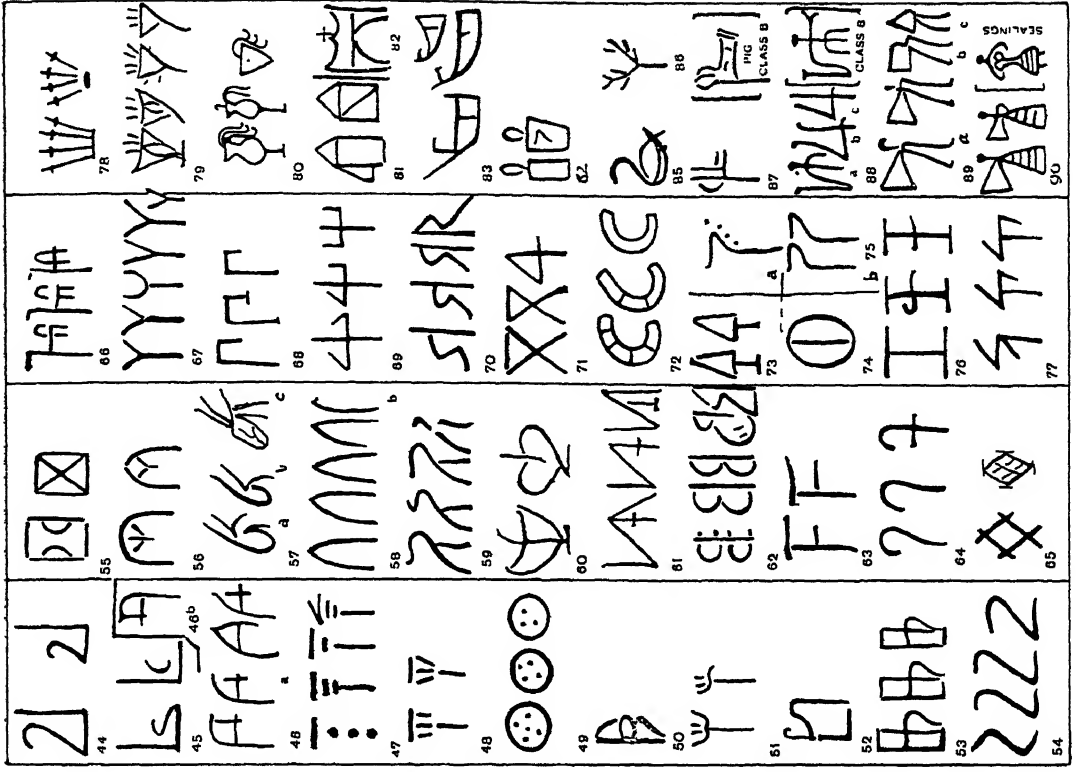 44
45
46b
46 a
47
48
49
50
51
52
53
54
55
56
57 a c
58 b
59
60
61
62
63
64
65
66
67
68
69
70
71
72
73 a
74 b 75
76
77
78
79
80
81 82
83
85 86
87 PIG
CLASS B
88 a b c CLASS B
89 a b c
90 SEALINGS